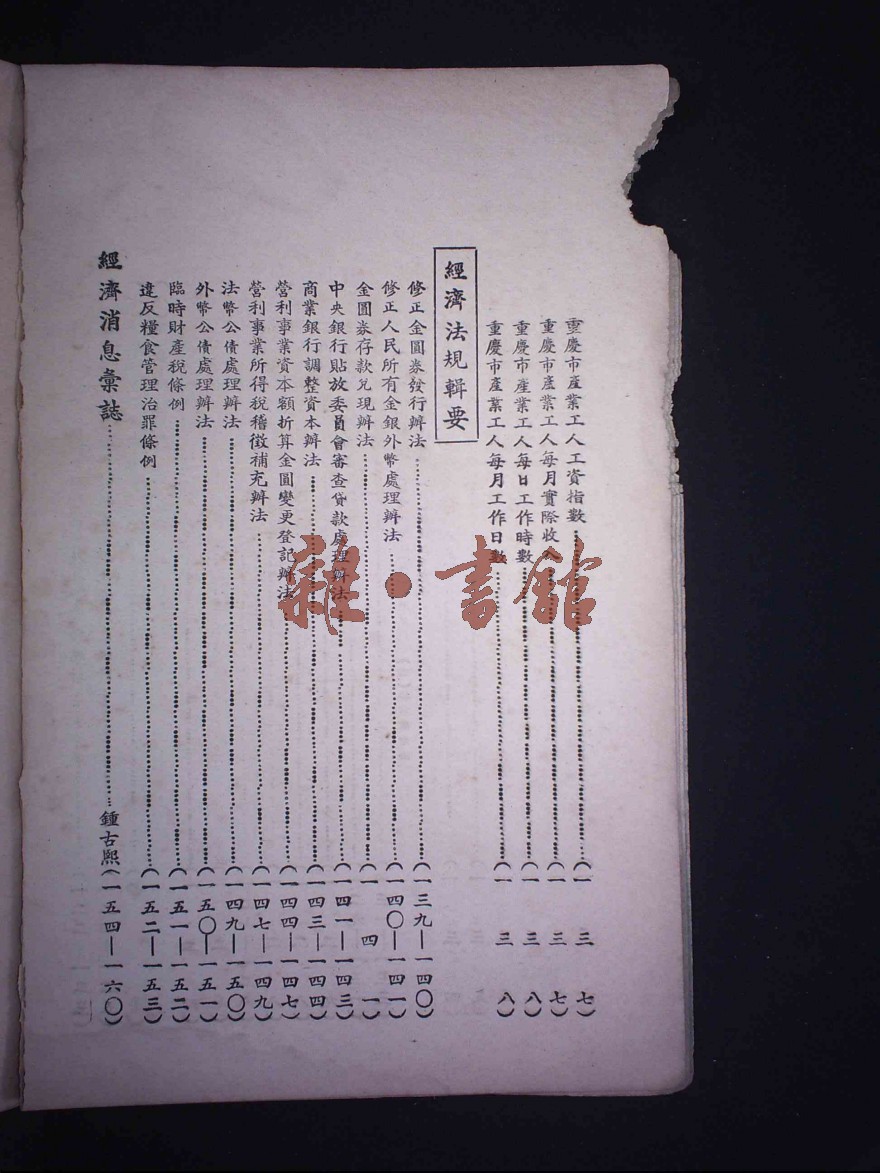 重慶市產業工人工資指數……(一三七)
重慶市產業工人每月實際收入……(一三七)
重慶市產業工人每日工作時數……(一三八)
重慶市產業工人每月工作日數……(一三八)
經濟法規輯要
修正金圓券發行辦法……(一三九—一四〇)
修正人民所有金銀外幣處理辦法……(一四〇—一四一)
金圓券存款兌現辦法……(一四一)
中央銀行貼放委員會審查貸款處理辦法……(一四一—一四三)
商業銀行調整資本辦法……(一四三—一四四)
營利事業資本額折算金圓變更登記辦法……(一四四—一四七)
營利事業所得稅稽徵補充辦法……(一四七—一四九)
法幣公債處理辦法……(一四九—一五〇)
外幣公債處理辦法……(一五〇—一五一)
臨時財產稅條例……(一五一—一五二)
違反糧食管理治罪條例……(一五二—一五三)
經濟消息彙誌……鍾古熙(一五四—一六〇)
雜·書館